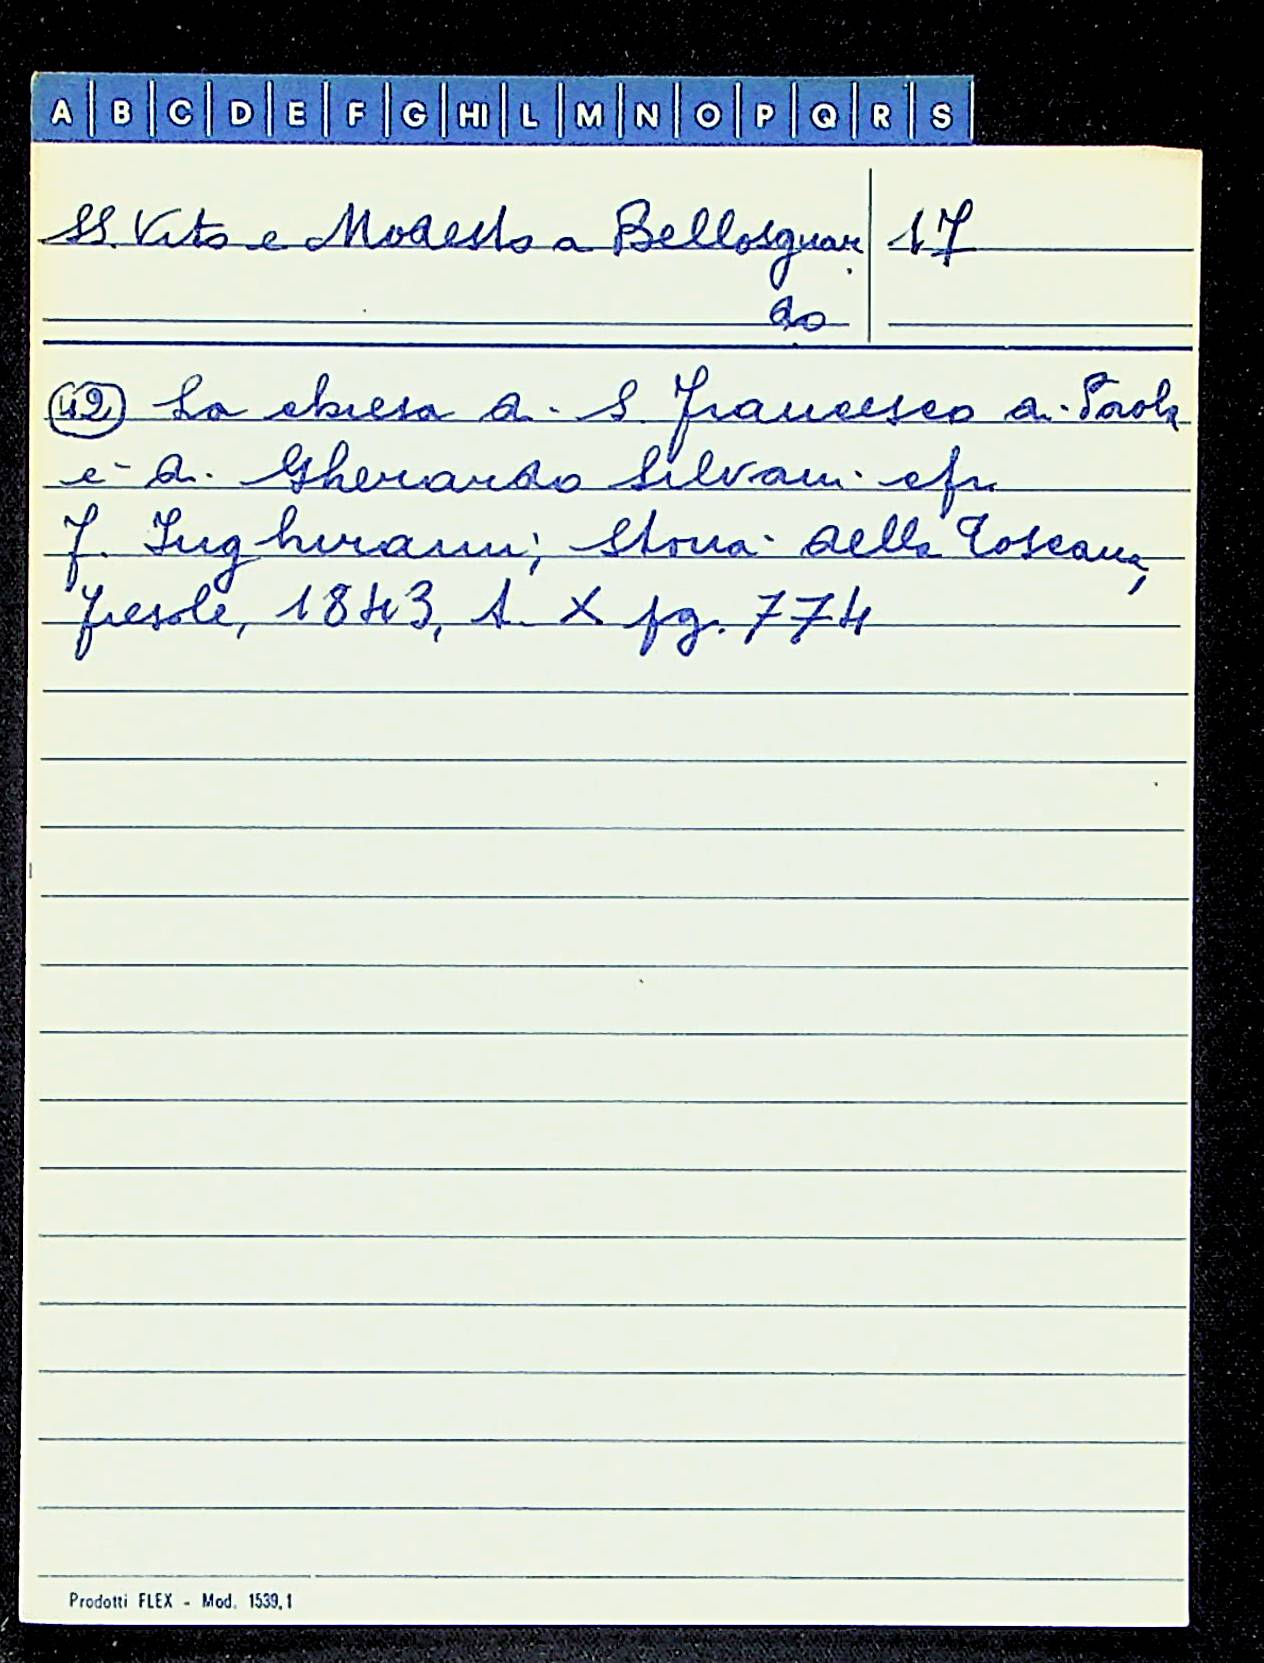 A B C D E F G HI L M N O P Q R S
SS. Vito e Modesto a Bellosguar
do
17
42 La chiesa di S. Francesco di Paola
è di Gherardo Silvani cfr.
F. Inghirami; Storia della Toscana,
Fiesole, 1843, t. X pg. 774
Prodotti FLEX - Mod. 1539,1